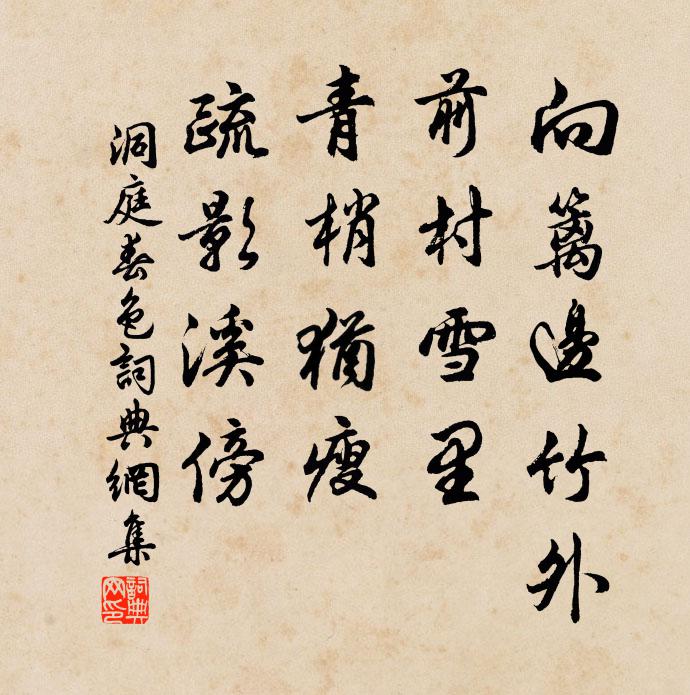 向籬邊竹外
前村雪里
青梢猶瘦
疏影溪傍
洞庭春色詞典網集
詞典網印